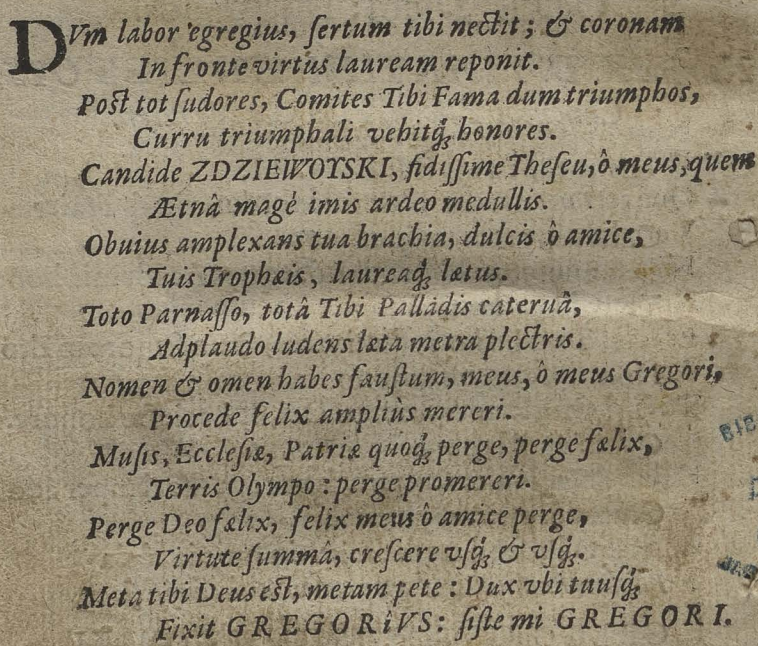 DVm labor egregius, ſertum tibi nectit; & coronam
In fronte virtus lauream reponit.
Poſt tot ſudores, Comites Tibi Fama dum triumphos,
Curru triumphali vehitq́; honores.
Candide ZDZIEWOYSKI, fidiſſime Theſeu, ô meus, quem
Ætnâ magé imis ardeo medullis.
Obuius amplexans tua brachia, dulcis ô amice,
Tuis Trophæis, laureaq́; lætus.
Toto Parnaſſo, totâ Tibi Palladis cateruâ,
Adplaudo ludens læta metra plectris.
Nomen & omen habes fauſtum, meus, ô meus Gregori,
Procede felix ampliùs mereri.
Muſis, Eccleſiæ, Patriæ quoq́; perge, perge fælix,
Terris Olympo: perge promereri.
Perge Deo fælix, felix meus ô amice perge,
Virtute ſummâ, creſcere vſq́; & vſq́;.
Meta tibi Deus eſt, metam pete: Dux vbi tuuſq́;
Fixit GREGORiVS: ſiſte mi GREGORI.